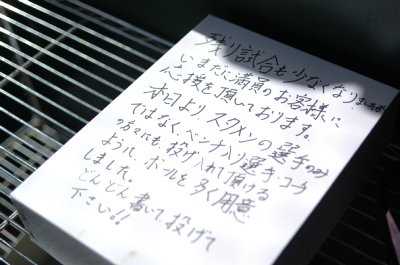 残り試合も少なくなりましたが
いまだに満員のお客様に
応援を頂しております。
本日より、スタメンの選手のみ
ではなく、ベンチ入り選手、コーチ
の方々にも、投げ入れて頂ける
ように、ボールを多く用意
しました。
どんどん書いて、投げて
下さい!!